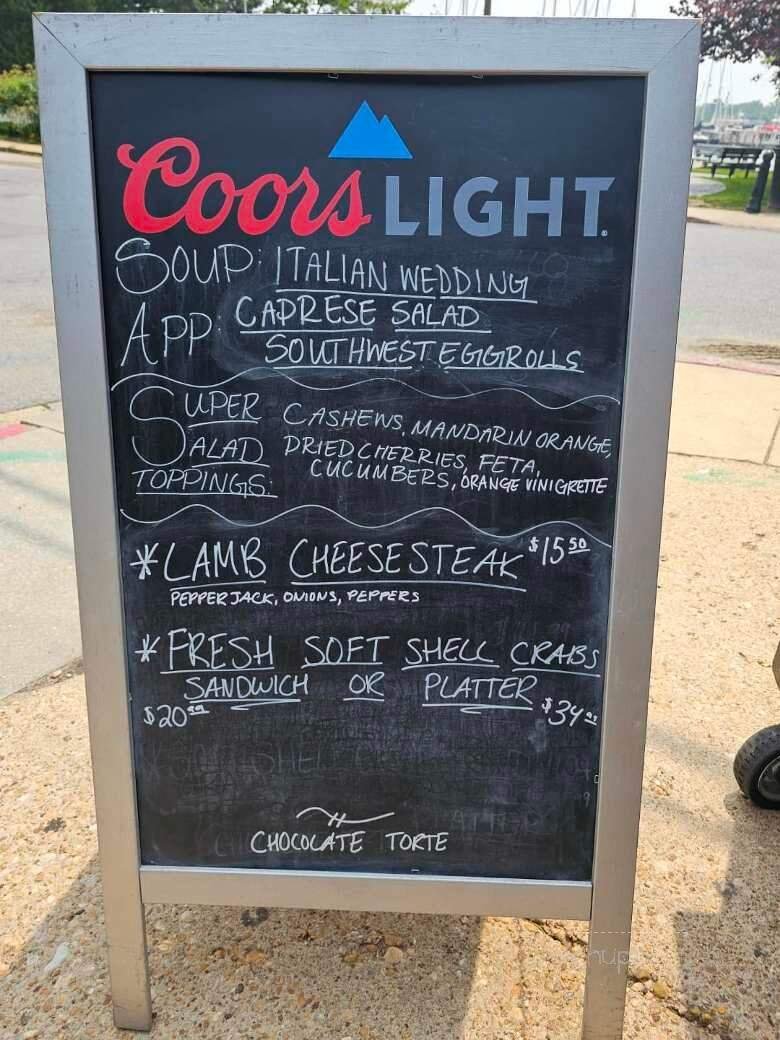 Coors LIGHT
SOUP: ITALIAN WEDDING
APP: CAPRESE SALAD
SOUTHWEST EGGROLLS
SUPER SALAD TOPPINGS:
CASHEWS, MANDARIN ORANGE,
DRIED CHERRIES, FETA,
CUCUMBERS, ORANGE VINIGRETTE
*LAMB CHEESESTEAK $15.50
PEPPERJACK, ONIONS, PEPPERS
*FRESH SOFT SHELL CRABS
SANDWICH OR PLATTER
$20 $34
CHOCOLATE TORTE